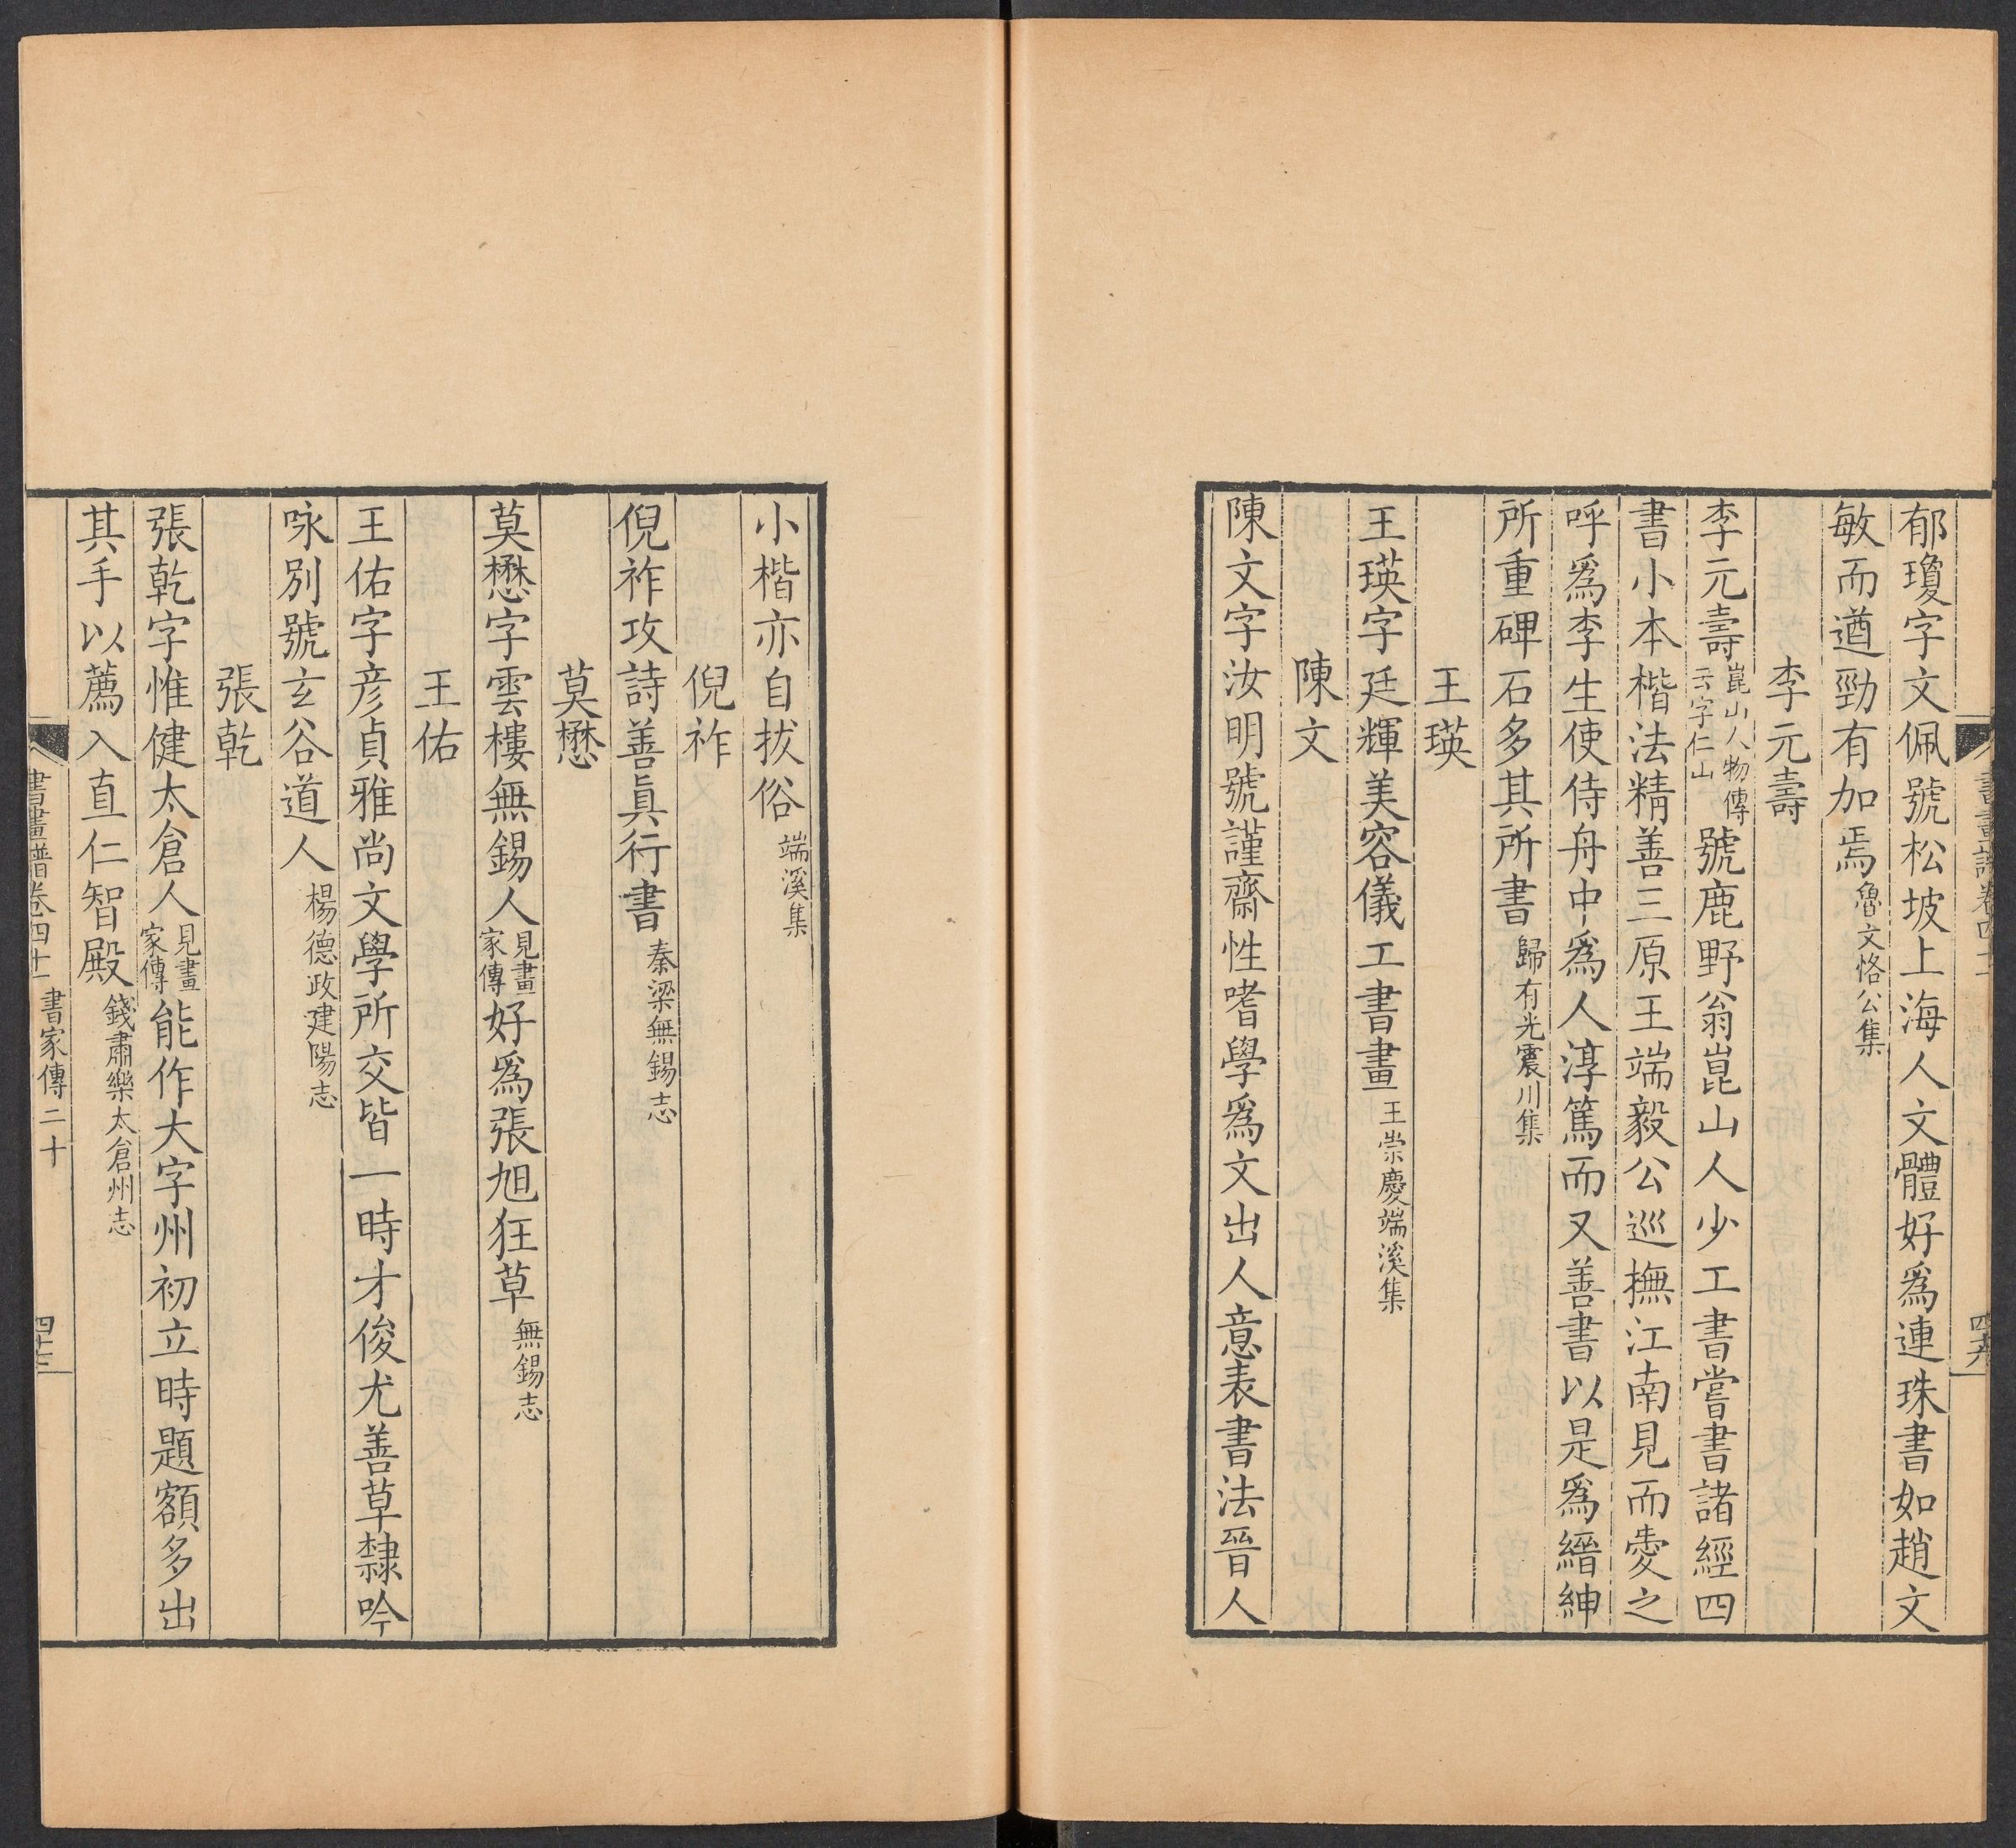 郁瓊字文佩號松坡上海人文體好爲連珠書如趙文
敏而遒勁有加焉魯文恪公集
李元壽
李元壽崑山人物傳云字仁山號鹿野翁崑山人少工書嘗書諸經四
書小本楷法精善三原王端毅公巡撫江南見而愛之
呼爲李生使侍舟中爲人淳篤而又善書以是爲縉紳
所重碑石多其所書歸有光震川集
王瑛
王瑛字廷輝美容儀工書畫王崇慶端溪集
陳文
陳文字汝明號謹齋性嗜學爲文出人意表書法晉人
小楷亦自拔俗端溪集
倪祚
倪祚攻詩善眞行書秦梁無錫志
莫懋
莫懋字雲樓無錫人見畫家傳好爲張旭狂草無錫志
王佑
王佑字彦貞雅尚文學所交皆一時才俊尤善草隸吟
咏別號玄谷道人楊德政建陽志
張乾
張乾字惟健太倉人見畫家傳能作大字州初立時題額多出
其手以薦入直仁智殿錢肅樂太倉州志
書畫譜卷四十二 書家傳二十